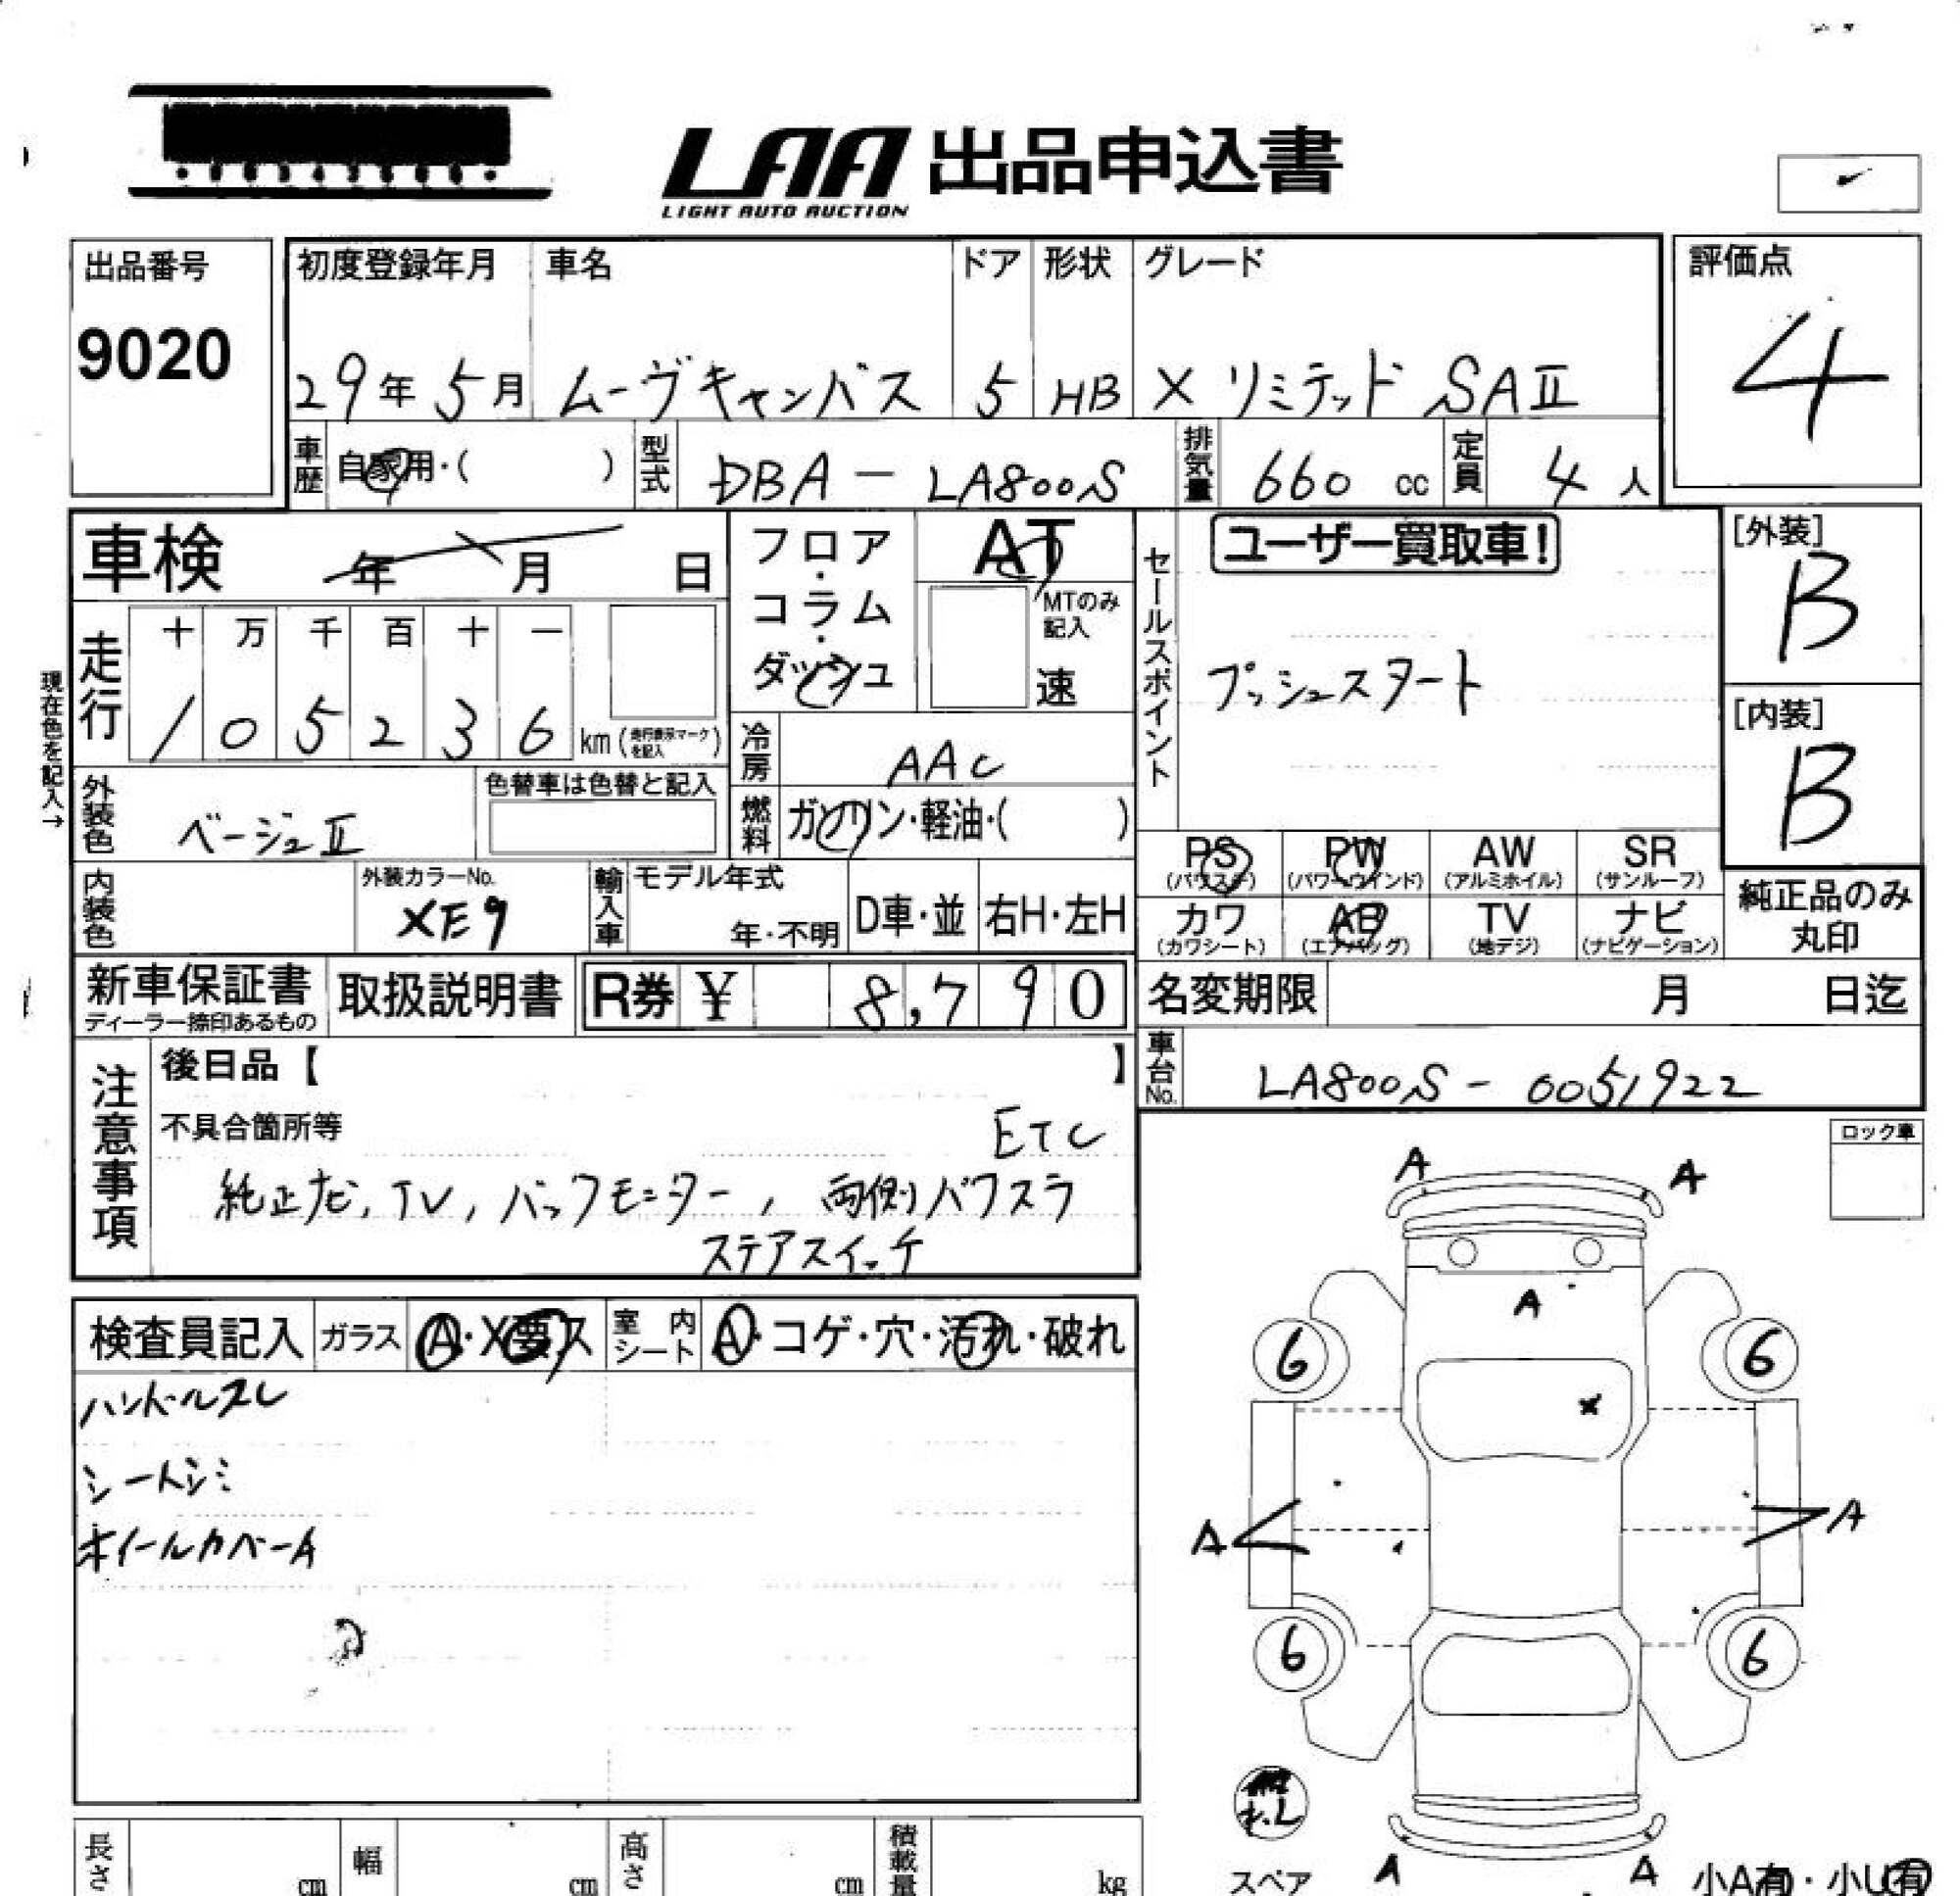 LAA 出品申込書
LIGHT AUTO AUCTION
出品番号
9020
初度登録年月 車名 ドア 形状 グレード
29年 5月 ムーヴキャンバス 5 HB X リミテッド SAⅡ
評価点
4
車歴 自家用・( ) 型式 DBA - LA800S 排気量 660 cc 定員 4 人
車検 年 月 日
フロア・コラム・ダッシュ
AT
MTのみ記入
速
走行
十 万 千 百 十 一
1 0 5 2 3 6 km (走行表示マークを記入)
現在色を記入→
冷房 AAC
燃料 ガソリン・軽油・( )
外装色 ベージュⅡ
色替車は色替と記入
内装色
外装カラーNo.
XE9
輸入車 モデル年式
年・不明 D車・並 右H・左H
新車保証書
ディーラー捺印あるもの
取扱説明書
R券 ¥ 8,790
セールスポイント
ユーザー買取車!
プッシュスタート
[外装]
B
[内装]
B
PS PW AW SR
(パワステ) (パワーウインド) (アルミホイル) (サンルーフ)
カワ AB TV ナビ
(カワシート) (エアバッグ) (地デジ) (ナビゲーション)
純正品のみ
丸印
名変期限 月 日迄
車台No. LA800S - 0051922
注意事項
後日品【 】
不具合箇所等
ETC
純正ナビ, TV, バックモニター, 両側パワスラ
ステアスイッチ
ロック車
検査員記入 ガラス A・X要ス 室内シート A・コゲ・穴・汚れ・破れ
ハンドルスレ
シートシミ
ホイールカバーA
A A
A
6 6
X
A A
6 6
スペア
A A
小A有・小U有
長さ cm 幅 cm 高さ cm 積載量 kg